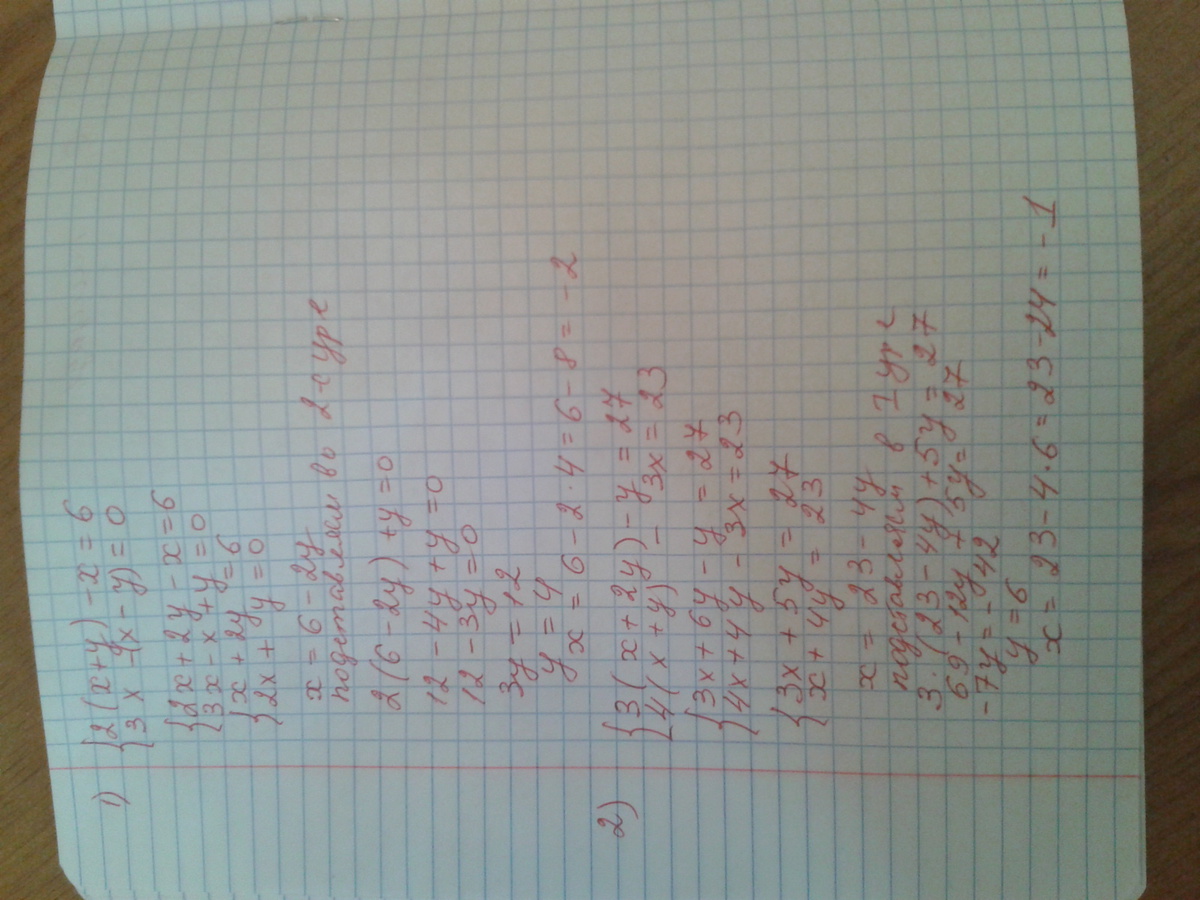 1) {2(x+y)-x=6
{3x-(x-y)=0
{2x+2y-x=6
{3x-x+y=0
{x+2y=6
{2x+y=0
x=6-2y
подставляем во 2-е ур-е
2(6-2y)+y=0
12-4y+y=0
12-3y=0
3y=12
y=4
x=6-2·4=6-8=-2
2) {3(x+2y)-y=27
{4(x+y)-3x=23
{3x+6y-y=27
{4x+4y-3x=23
{3x+5y=27
x+4y=23
x=23-4y
подставляем в 1 ур-е
3·(23-4y)+5y=27
69-12y+5y=27
-7y=-42
y=6
x=23-4·6=23-24=-1